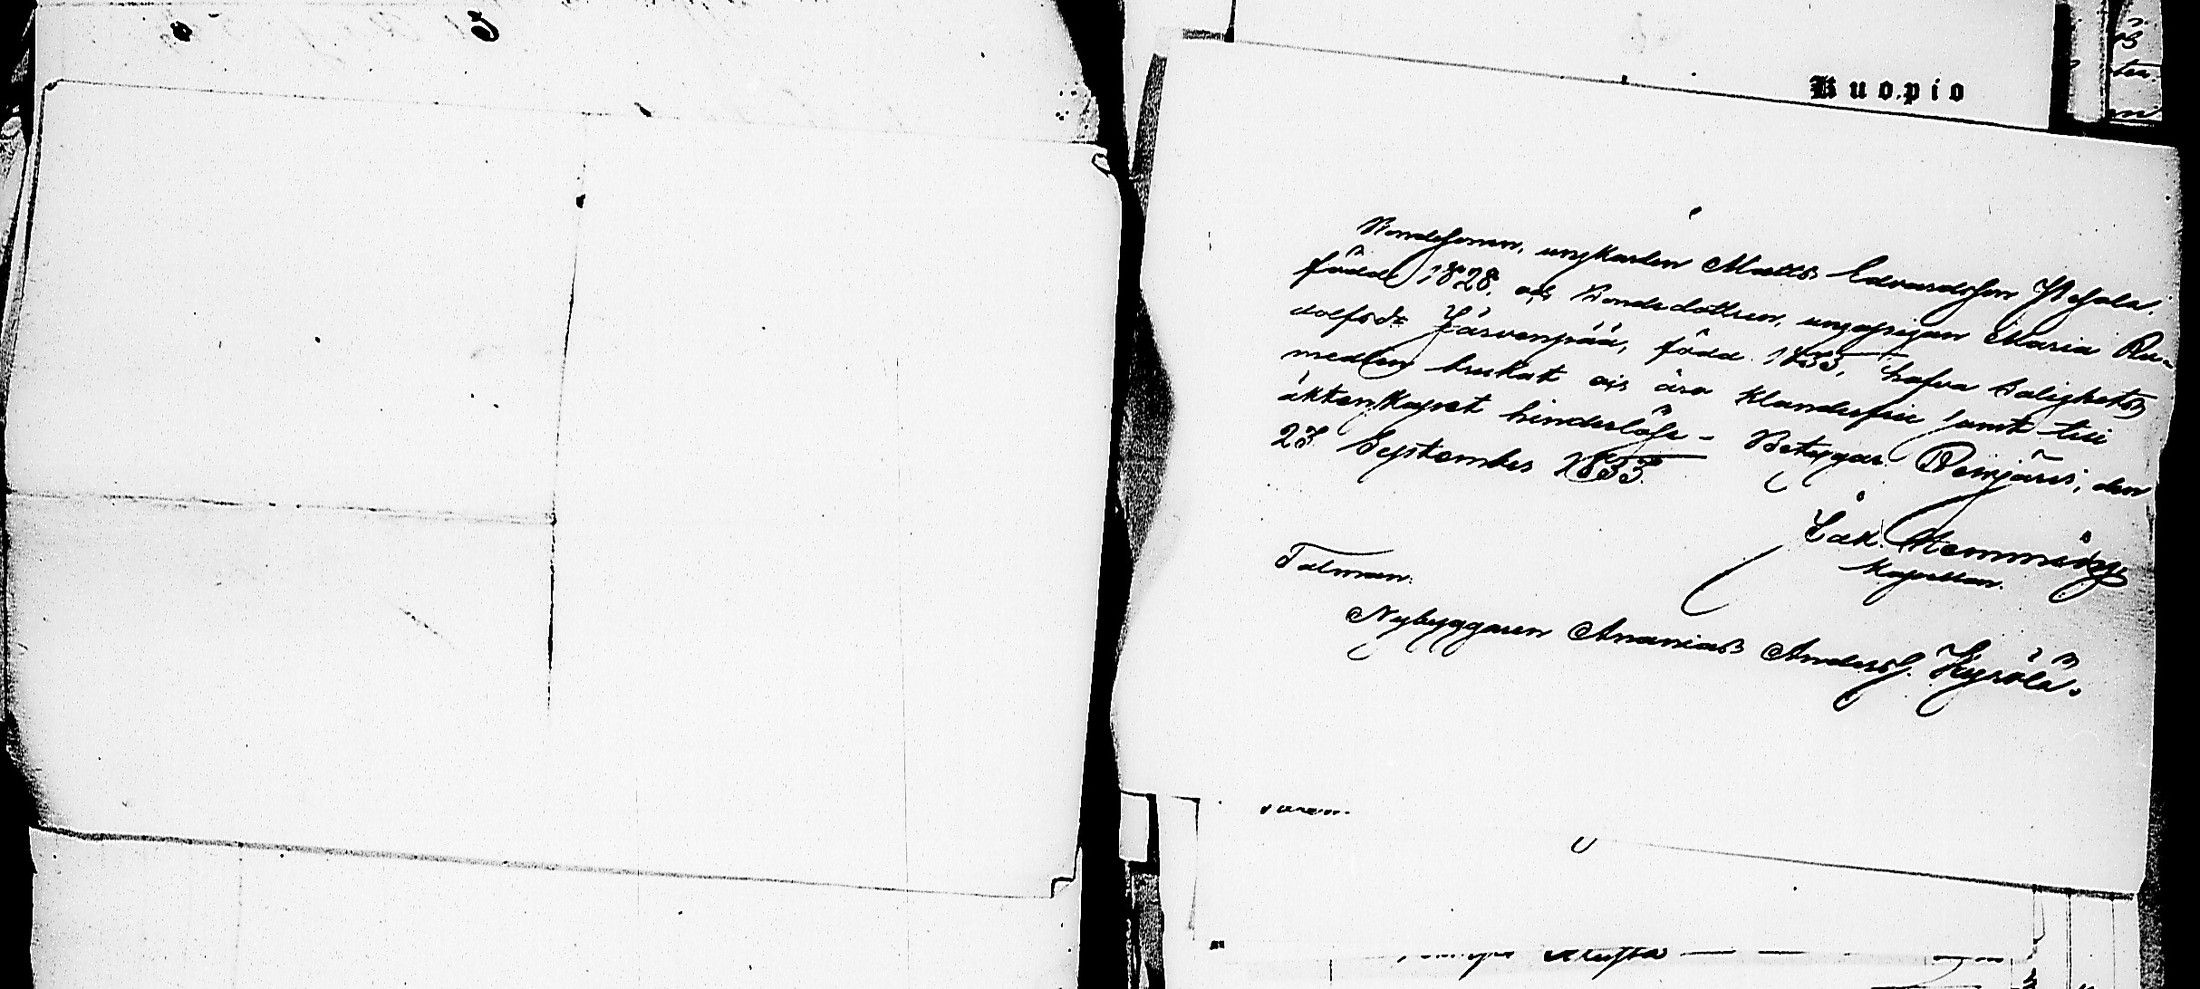 Kuopio
Bondesonen, ungkarlen Matts Edvardsson Pesola,
född 1828, och Bondedottren, ungapigan Maria Ru-
dolfsdr Järvenpää, född 1833, hafva Salighets
medlen brukat och äro klanderfrie samt till
äktenskapet hinderlöse - Betygar Perhojärvi, den
23 September 1855.
Kapellan.
Talman:
Nybyggaren Ananias Anderss. Kyrölä.